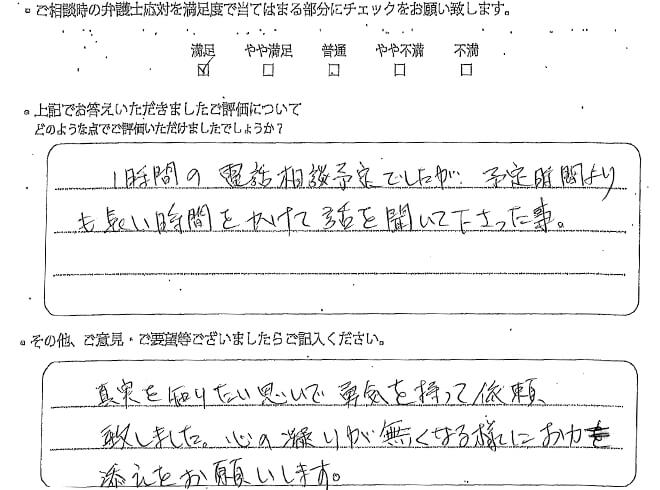 ご相談時の弁護士応対を満足度で当てはまる部分にチェックをお願い致します。
満足 やや満足 普通 やや不満 不満
上記でお答えいただきましたご評価について
どのような点でご評価いただけましたでしょうか？
1時間の電話相談予定でしたが、予定時間より
も長い時間をかけて話を聞いて下さった事。
その他、ご意見・ご要望等ございましたらご記入ください。
真実を知りたい思いで勇気を持って依頼、
致しました。心の凝りが無くなる様にお力
添えをお願いします。